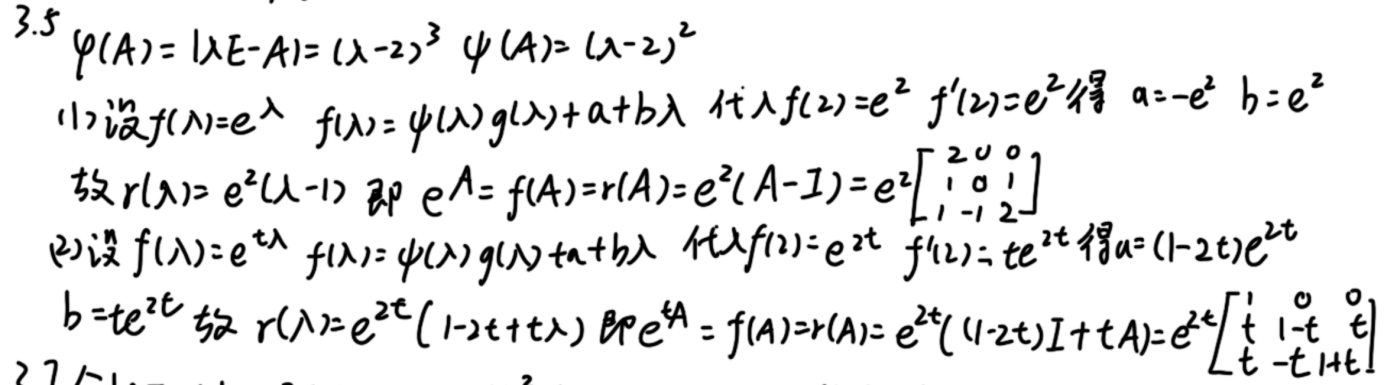 3.5 φ(A)=|λE-A|=(λ-2)³ ψ(A)=(λ-2)²
(1)设f(λ)=e^λ f(λ)=ψ(λ)g(λ)+a+bλ 代入f(2)=e² f'(2)=e²得 a=-e² b=e²
故r(λ)=e²(λ-1) 即 e^A=f(A)=r(A)=e²(A-I)=e²[2 0 0; 1 0 1; 1 -1 2]
(2)设f(λ)=e^{tλ} f(λ)=ψ(λ)g(λ)+a+bλ 代入f(2)=e^{2t} f'(2)=te^{2t}得a=(1-2t)e^{2t}
b=te^{2t} 故 r(λ)=e^{2t}(1-2t+tλ) 即e^{tA}=f(A)=r(A)=e^{2t}((1-2t)I+tA)=e^{2t}[1 0 0; t 1-t t; t -t 1+t]